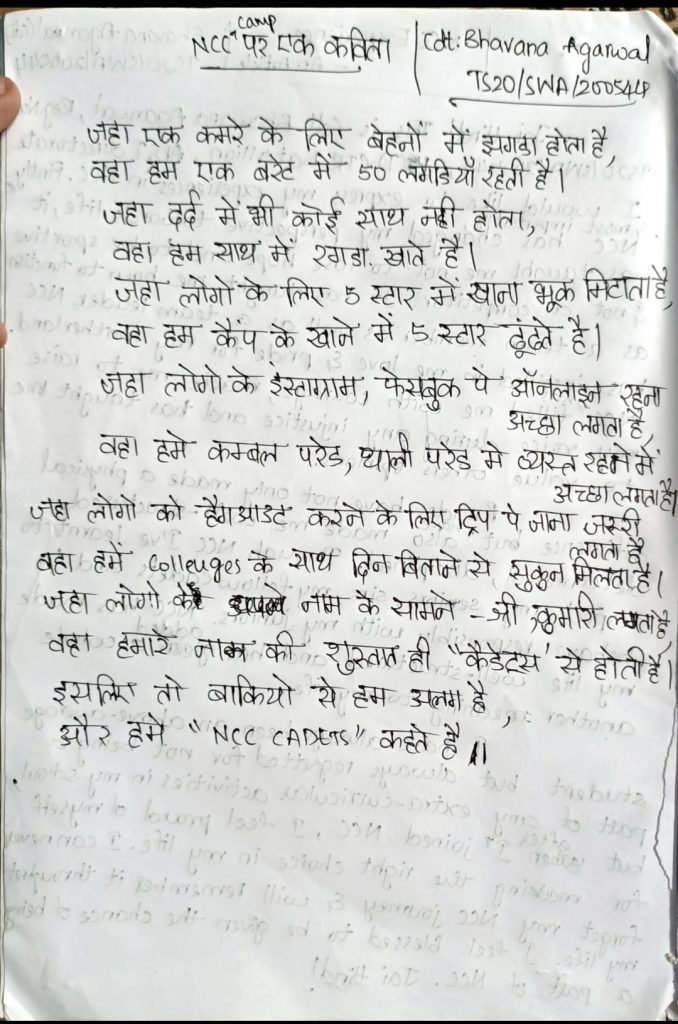 NCC camp पर एक कविता
Cdt: Bhavana Agarwal
TS20/SWA/200544
जहा एक कमरे के लिए बेहनों में झगडा होता है,
वहा हम एक बरेट में 50 लडकियाँ रहती है।
जहा दर्द में भी कोई साथ नही होता,
वहा हम साथ में रगडा खाते है।
जहा लोगो के लिए 5 स्टार में खाना भूक मिटाता है,
वहा हम कैंप के खाने में 5 स्टार ढूंढते है।
जहा लोगो के इंस्टाग्राम, फेसबुक पे ऑनलाइन रहना
अच्छा लगता है,
वहा हमे कम्बल परेड, थाली परेड मे व्यस्त रहने में
अच्छा लगता है।
जहा लोगो को हैंगआउट करने के लिए ट्रिप पे जाना जरूरी
लगता है
वहा हमें Colleuges के साथ दिन बिताने से सुकुन मिलता है।
जहा लोगो के नाम के सामने - श्री, कुमारी लगता है
वहा हमारे नाम की शुरुवात ही "कैडेट्स" से होती है।
इसलिए तो बाकियो से हम अलग है,
और हमे "NCC CADETS" कहते है॥